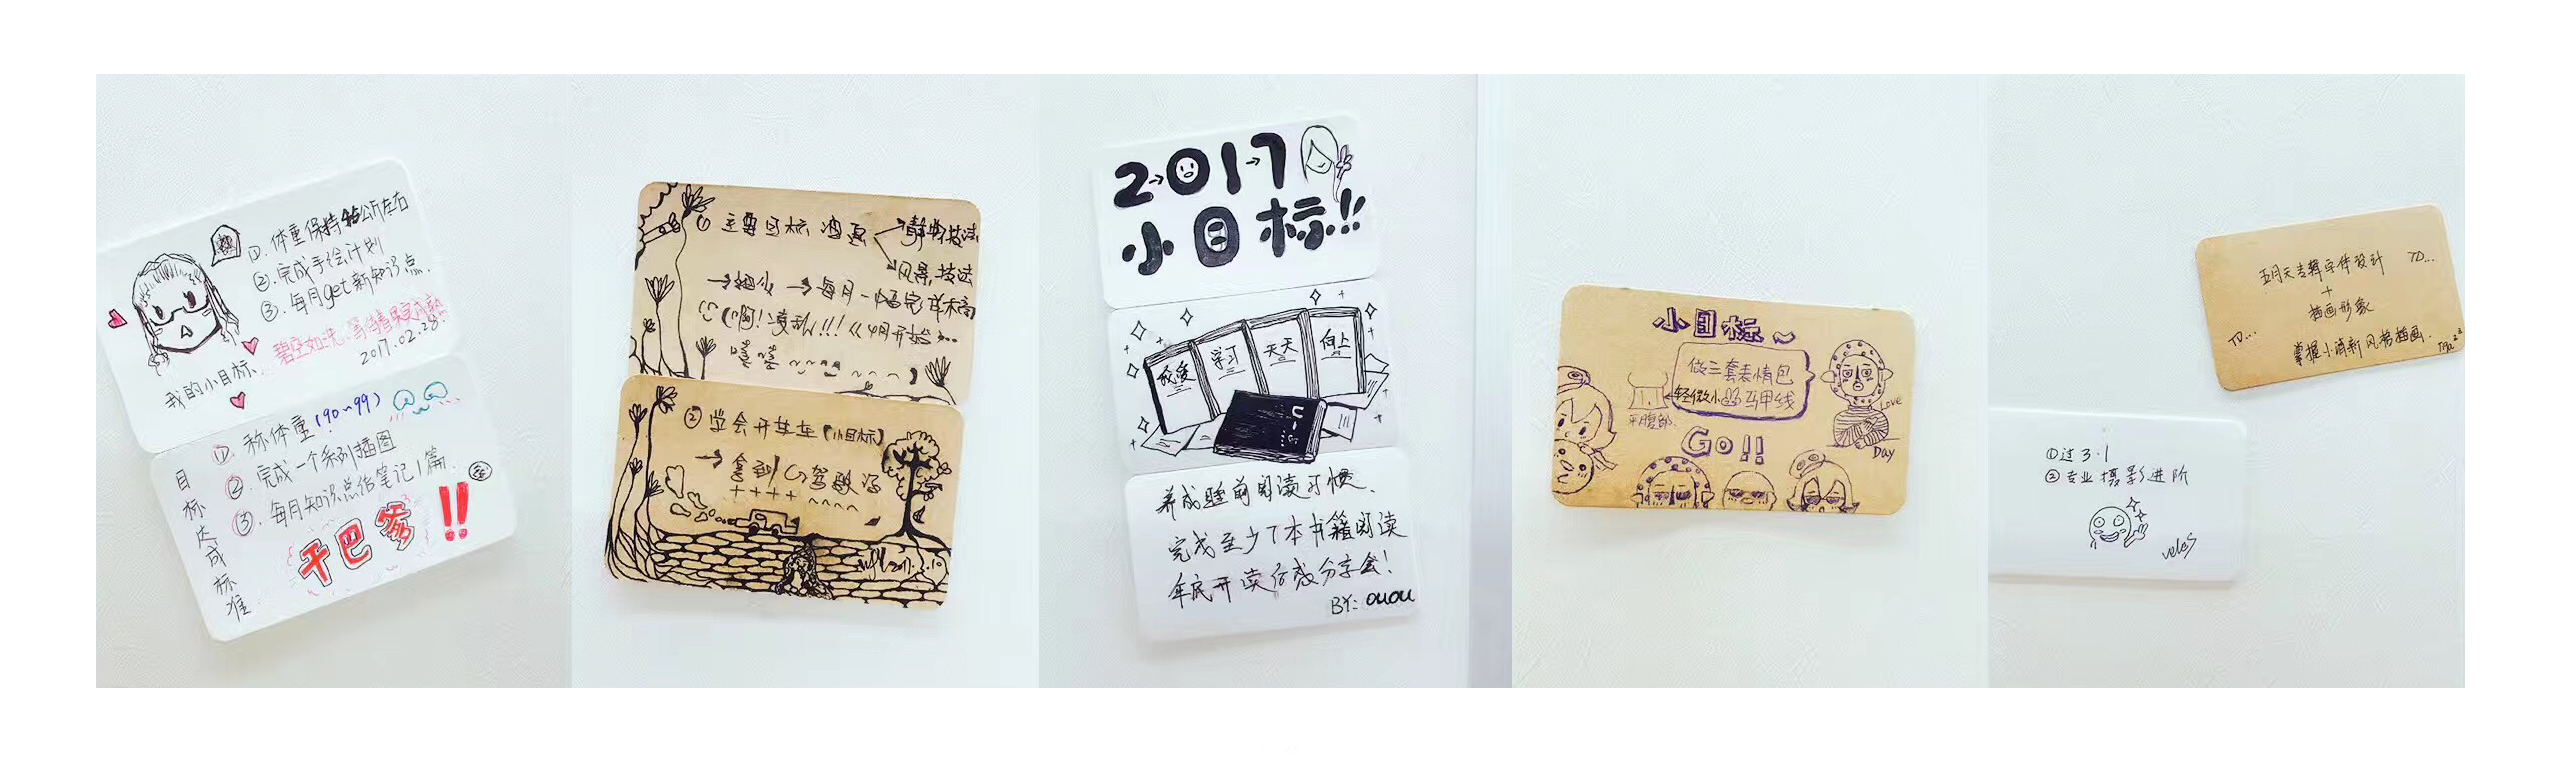 ①. 体重保持45公斤左右
②. 完成手绘计划
③. 每月get新知识点.
碧空如洗、等待着果实成熟
2017.02.28.
我的小目标、
目标达成标准
①. 称体重(90~99)
②. 完成一个系列插图
③. 每月知识点佮笔记1篇.
干巴爹!!
① 主要目标 漫画
静物技法
风景技法
→ 每月一幅完
4月开始
② 学会开车车(小目标)
→ 拿到 驾驶证
++++
2017
小目标!!
我爱
学习
天天
向上
养成睡前阅读习惯、
完成至少7本书籍阅读
年底开读后感分享会!
BY: OUOU
小目标~
做三套表情包
轻微小 马甲线
平腹部.
Go!!
Love
Day
五月天专辑字体设计 TD...
+
插画形象
TD... 掌握小清新风格插画.
①过3.1
②专业摄影进阶
veles